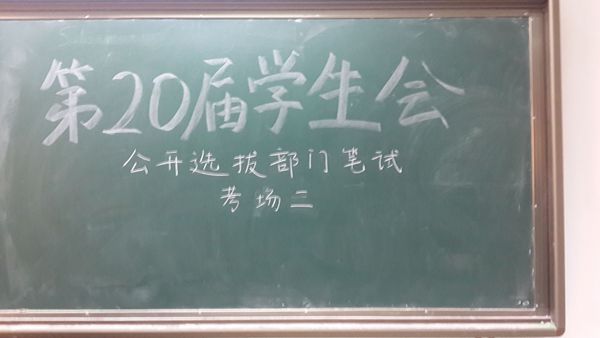 第20届学生会
公开选拔部门笔试
考场二